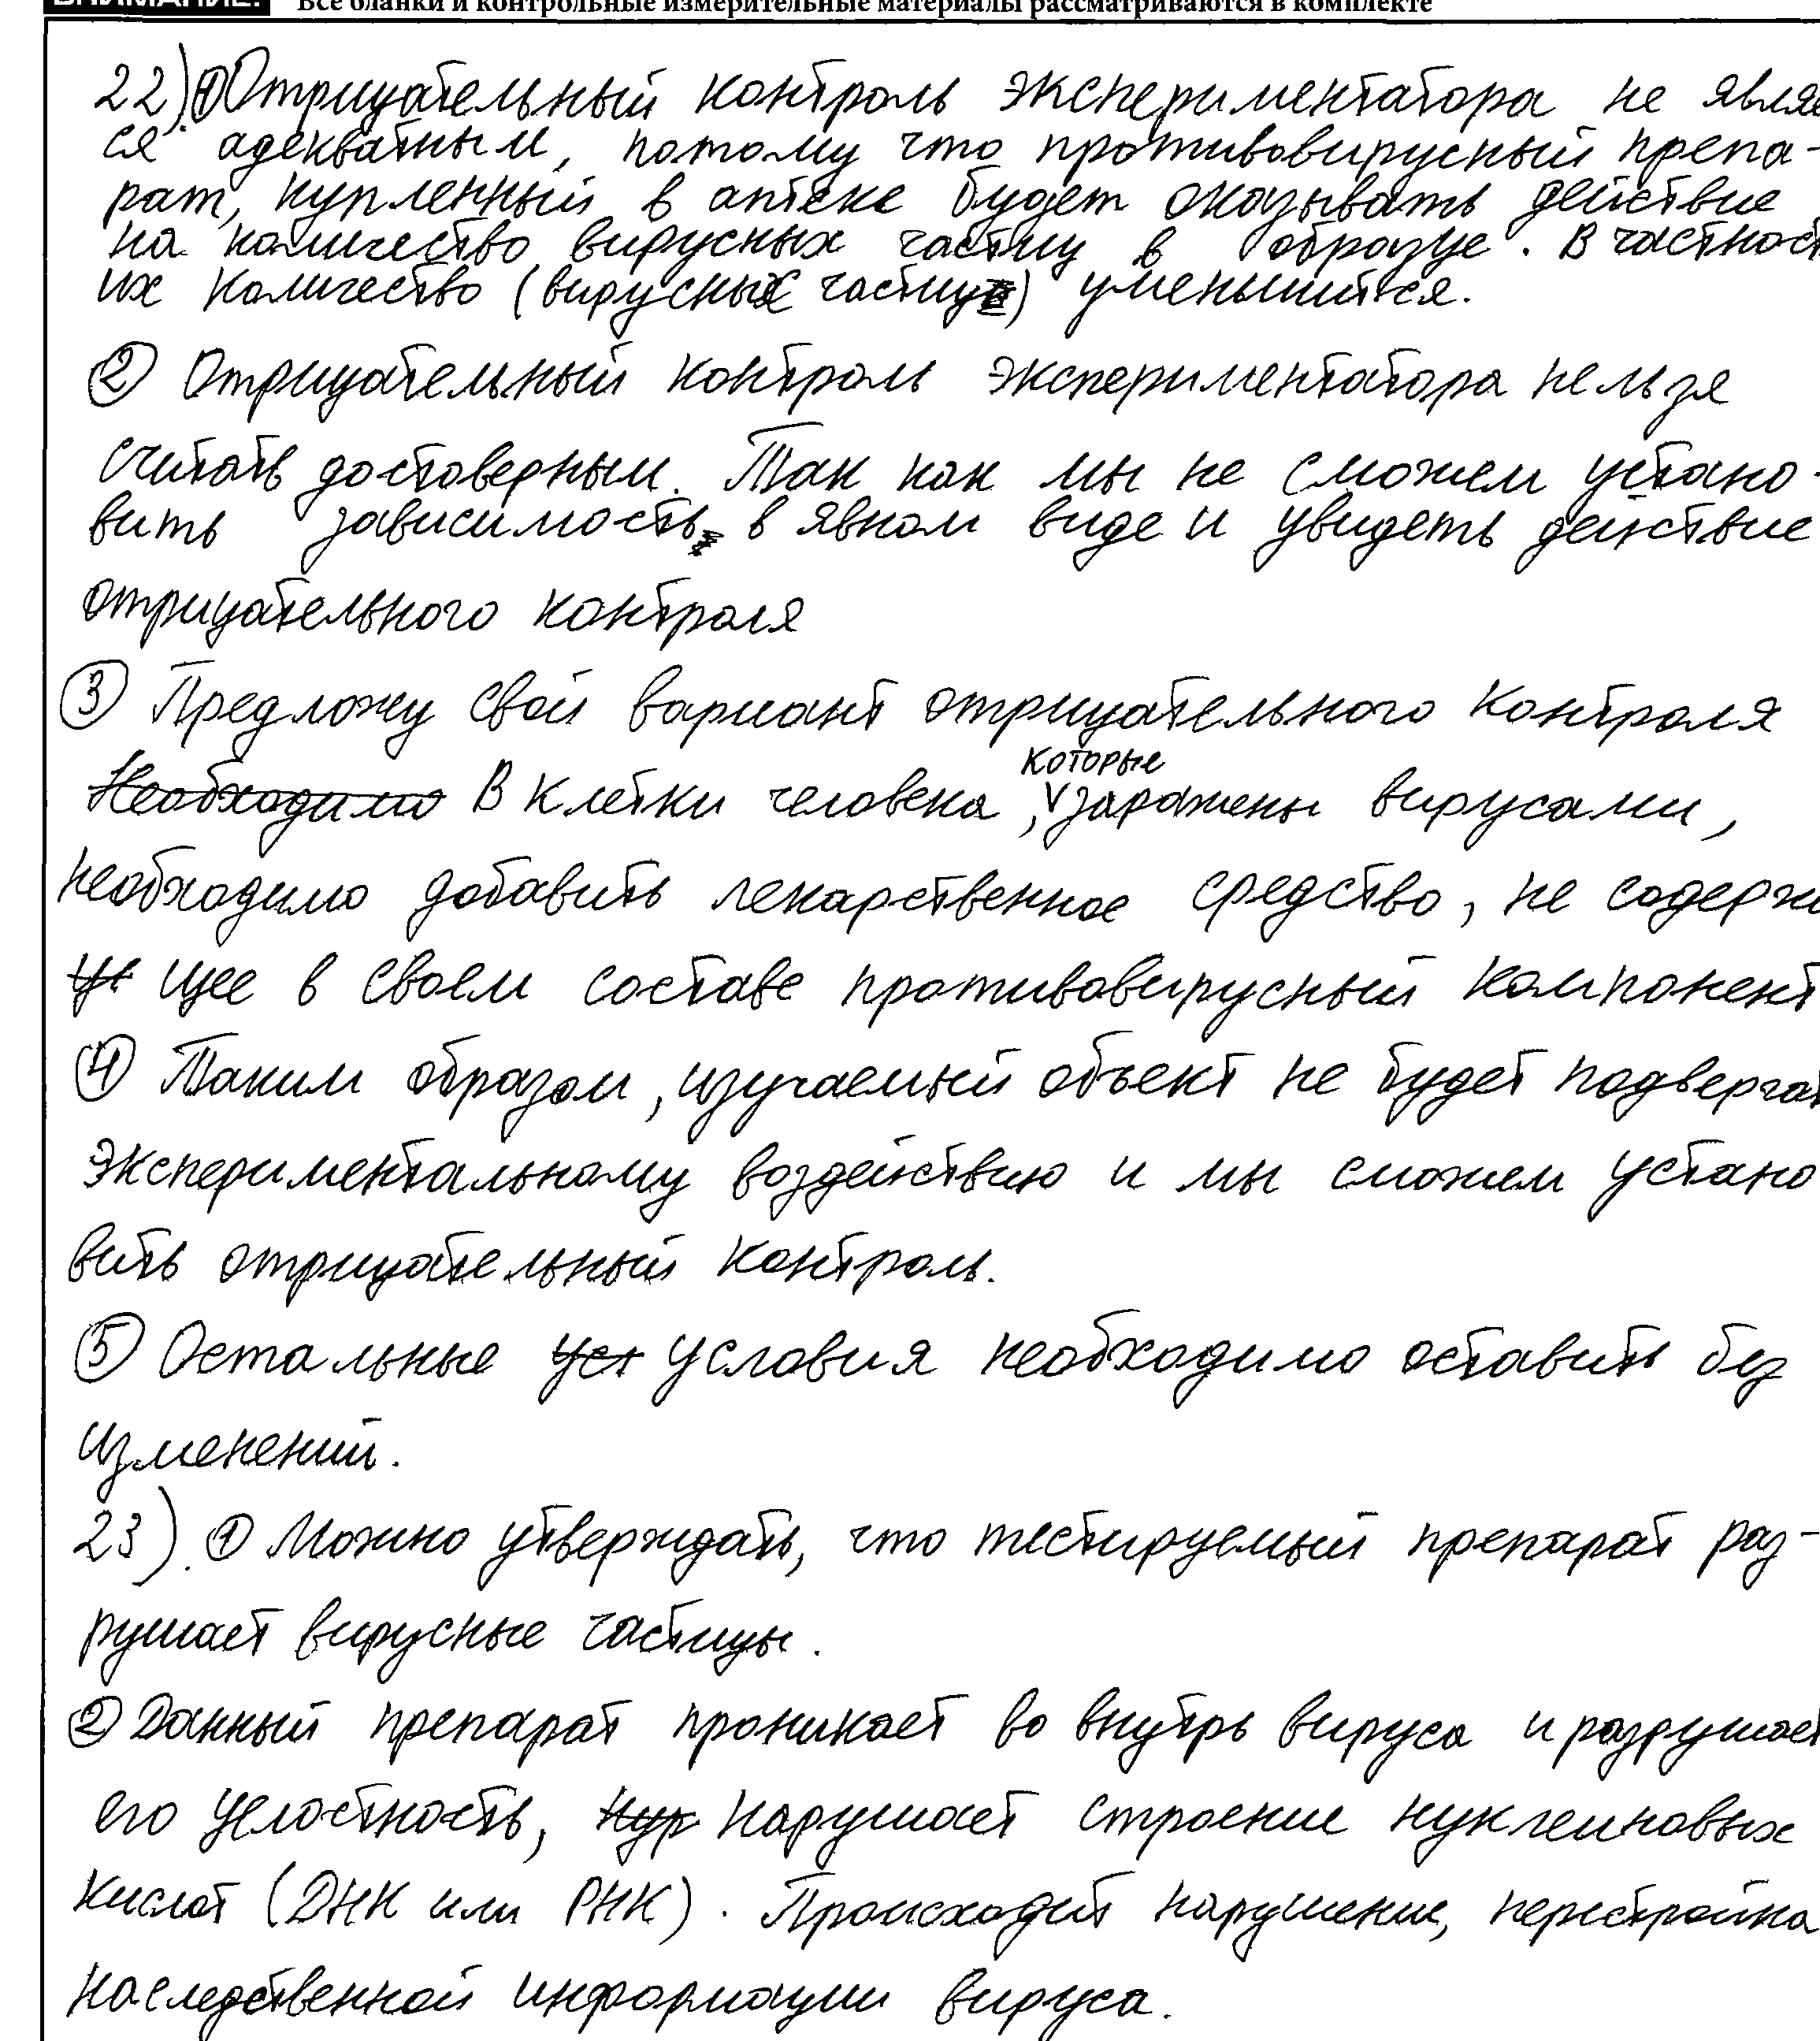 ВНИМАНИЕ! Все бланки и контрольные измерительные материалы рассматриваются в комплекте
22) ① Отрицательный контроль экспериментатора не являе
ся адекватным, потому что противовирусный препа-
рат, купленный в аптеке будет оказывать действие
на количество вирусных частиц в образце. В частност
их количество (вирусных частиц) уменьшится.
② Отрицательный контроль экспериментатора нельзя
считать достоверным. Так как мы не сможем устано-
вить зависимость в явном виде и увидеть действие
отрицательного контроля
③ Предложу свой вариант отрицательного контроля
Необходимо В клетки человека, которые заражены вирусами,
необходимо добавить лекарственное средство, не содержа
щее в своем составе противовирусный компонент
④ Таким образом, изучаемый объект не будет подвергат
экспериментальному воздействию и мы сможем устано
вить отрицательный контроль.
⑤ Остальные уст условия необходимо оставить без
изменений.
23). ① Можно утверждать, что тестируемый препарат раз-
рушает вирусные частицы.
② Данный препарат проникает во внутрь вируса и разрушает
его целостность, нур нарушает строение нуклеиновых
кислот (ДНК или РНК). Происходит нарушение, перестройка
наследственной информации вируса.